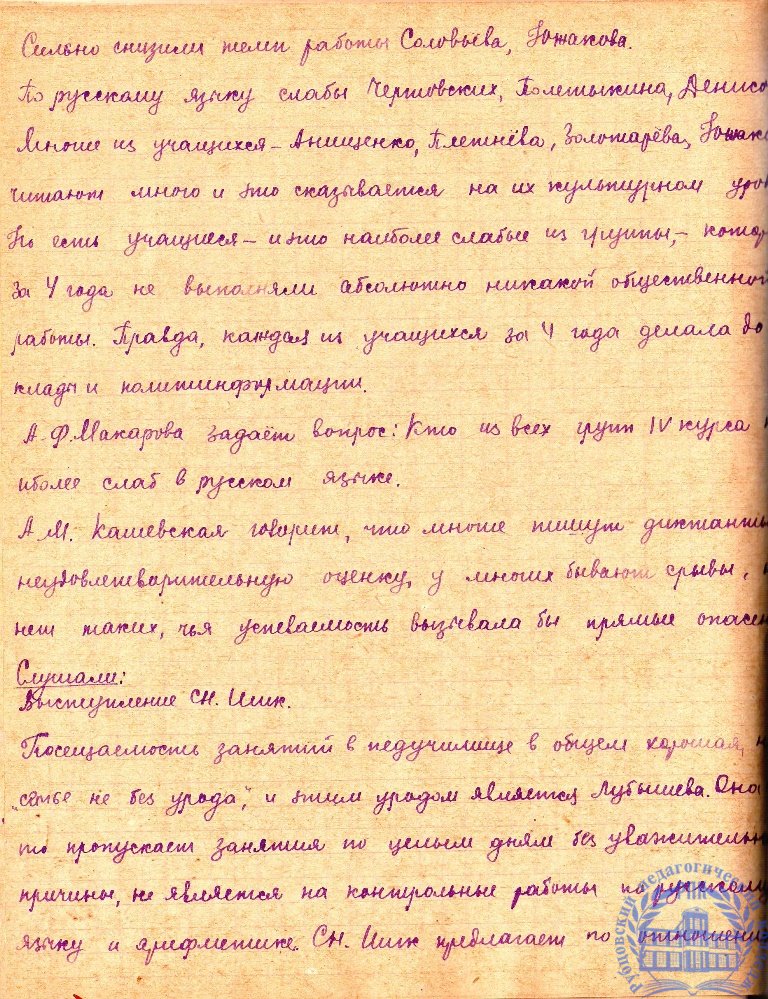 Сильно снизили темп работы Соловьёва, Южакова.
По русскому языку слабы Чертовских, Полетыкина, Денисо
Многие из учащихся – Анищенко, Плетнёва, Золотарёва, Южако
читают много и это сказывается на их культурном уров
Но есть учащиеся – и это наиболее слабые из группы, – котор
за 4 года не выполняли абсолютно никакой общественной
работы. Правда, каждая из учащихся за 4 года делала до
клады и политинформации.
А.Ф. Макарова задаёт вопрос: Кто из всех групп IV курса н
иболее слаб в русском языке.
А.М. Кашевская говорит, что многие пишут диктанты
неудовлетворительную оценку, у многих бывают срывы,
нет таких, чья успеваемость вызывала бы прямые опасен
Слушали:
Выступление С.Н. Шик.
Посещаемость занятий в педучилище в общем хорошая, н
"семье не без урода", и этим уродом является Лубышева. Она
то пропускает занятия по целым дням без уважительно
причины, не является на контрольные работы по русскому
языку и арифметике. С.Н. Шик предлагает по отношению
Рубцовский педагогический